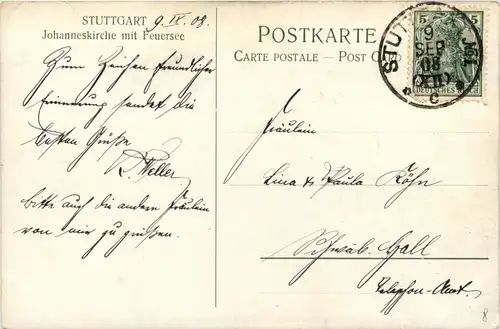 STUTTGART 9. IX. 08.
Johanneskirche mit Feuersee
Zum Zeichen freundlicher
Erinnerung sendet die
besten Grüße
Weller
bitte auch die andern Fräulein
von mir zu grüßen.
POSTKARTE
CARTE POSTALE — POST CARD
STUTTG
9
SEP
08
XII
c
5 5
DEUTSCHES REICH
Fräulein
Lina & Paula Köhn
Schwäb. Hall
Telephon-Amt.
8